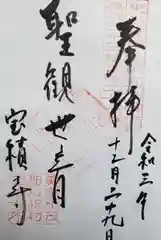 奉拝
令和三年
十二月二十九日
聖観世音
宝積寺